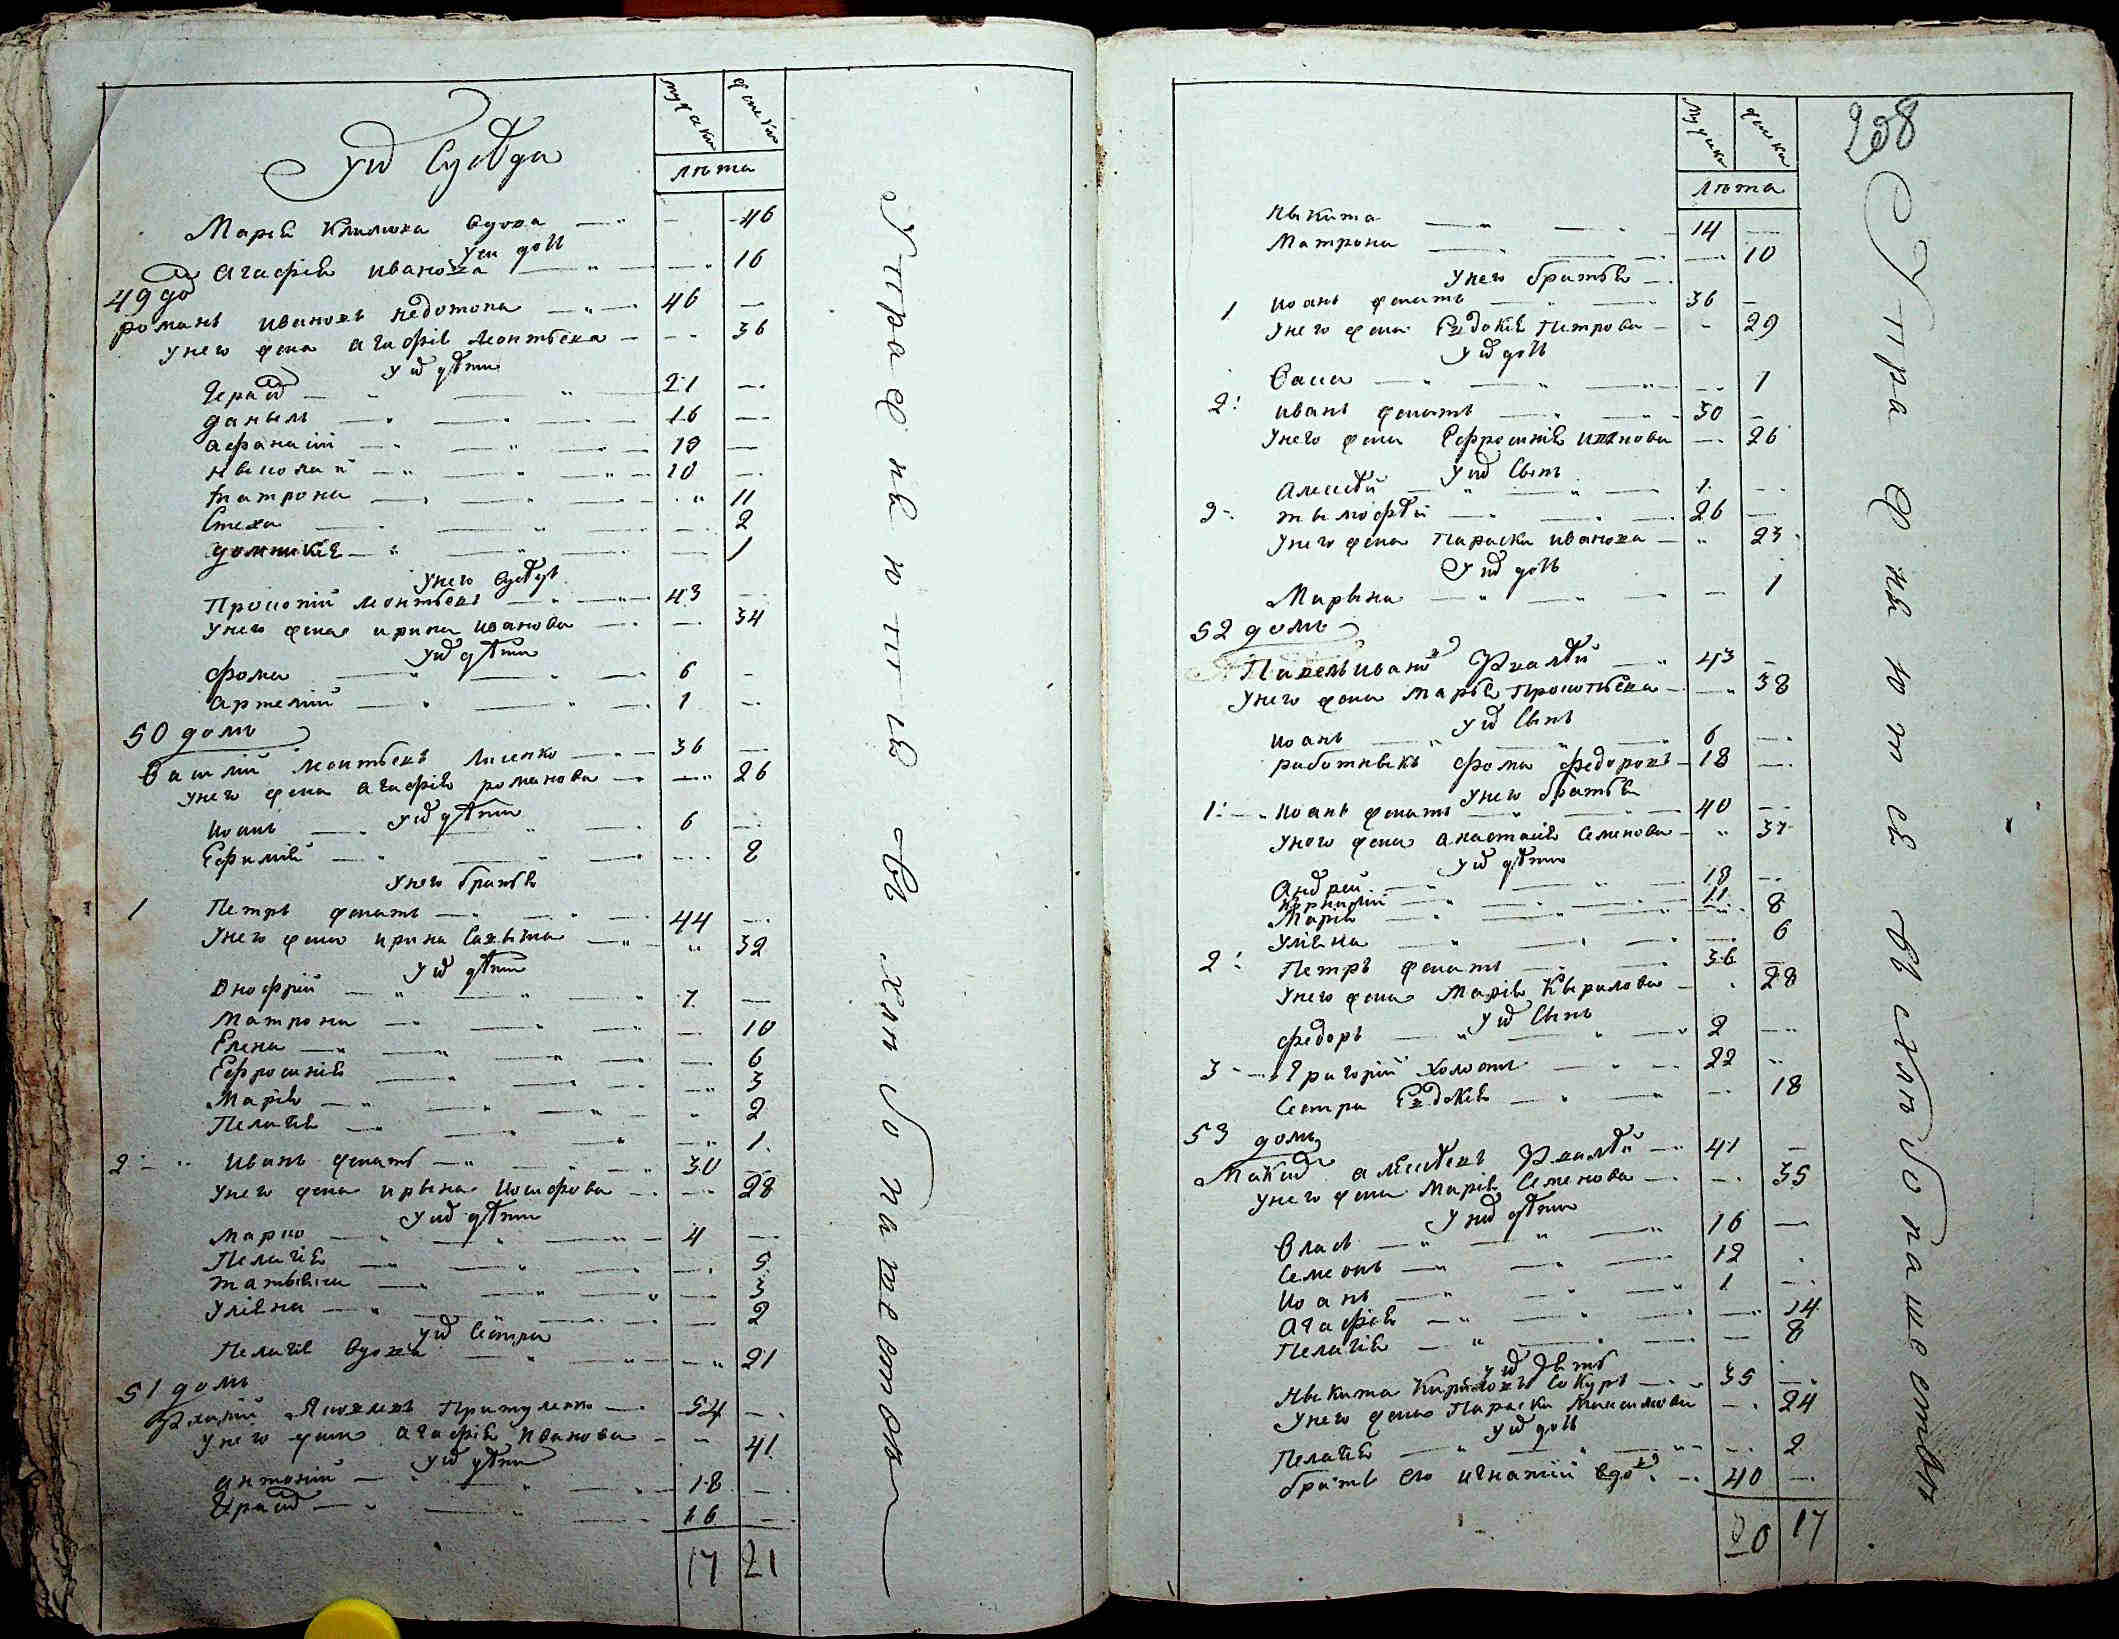 мужска
женска
лѣта
у них Сусѣда
Мариѣ Климова вдова — 46
у еи дочь
Агафиѣ иванова — 16
49 до
романъ ивановъ недотопа — 46
у него жена агафиѣ леонтьева — 36
у них дѣти
Герасим — 21
данылъ — 16
афанасий — 13
ныколай — 10
матрона — 11
Стеха — 2
домникиѣ — 1
у него Сусѣдъ
Прокопий леонтьевъ — 43
у него жена ирина иванова — 34
у них дѣти
фома — 6
артемий — 1
50 домъ
василий леонтьевъ лисенко — 36
у него жена агафиѣ романова — 26
у них дѣти
иоанъ — 6
Ефимиѣ — 8
у него братья
1 Петръ женатъ — 44
у него жена ирина Савына — 32
у них дѣти
Онофрий — 7
Матрона — 10
Елена — 6
Ефросиниѣ — 3
Мариѣ — 2
Пелагиѣ — 1
2 Иванъ женатъ — 30
у него жена ирына иосифова — 28
у них дѣти
Марко — 4
Пелагиѣ — 5
татьяна — 3
Улиѣна — 2
у них Сестра
Пелагиѣ вдова — 21
51 домъ
Яковлевъ Притуленко — 54
у него жена агафиѣ иванова — 41
у них дѣти
антоний — 18
Герасим — 16
17 21
Упражняются въ хлѣбопашествѣ
238
мужска
женска
лѣта
Ныкита — 14
Матрона — 10
у него братья
1 иоанъ женатъ — 36
у него жена Евдокиѣ Петрова — 29
у них дочь
Васса — 1
2: иванъ женатъ — 30
у него жена Ефросиниѣ иванова — 26
у них Сынъ
Алексѣй — 1
3: тымофѣй — 26
у него жена Параска иванова — 23
у них дочь
Марына — 1
52 домъ
Павелъ иванов — 43
у него жена Марьѣ Прокопьева — 38
у них Сынъ
иоанъ — 6
работныкъ фома федоровъ — 18
у него братья
1: иоанъ женатъ — 40
у него жена анастасиѣ Семенова — 37
у них дѣти
Андрей — 18
11
Мариѣ — 8
Улиѣна — 6
2: Петръ женатъ — 36
у него жена Мариѣ Кырилова — 28
у них Сынъ
федоръ — 2
3 Григорий холостъ — 22
Сестра Евдокиѣ — 18
53 домъ
Макар алексѣевъ — 41
у него жена Мариѣ Семенова — 35
у них дѣти
Власъ — 16
Семеонъ — 12
Иоанъ — 1
Агафиѣ — 14
Пелагиѣ — 8
Ныкита Кириловъ Сокуръ — 35
у него жена Параска Максимова — 24
у них дочь
Пелагиѣ — 2
братъ его игнатий вдов — 40
20 17
Упражняются въ хлѣбопашествѣ